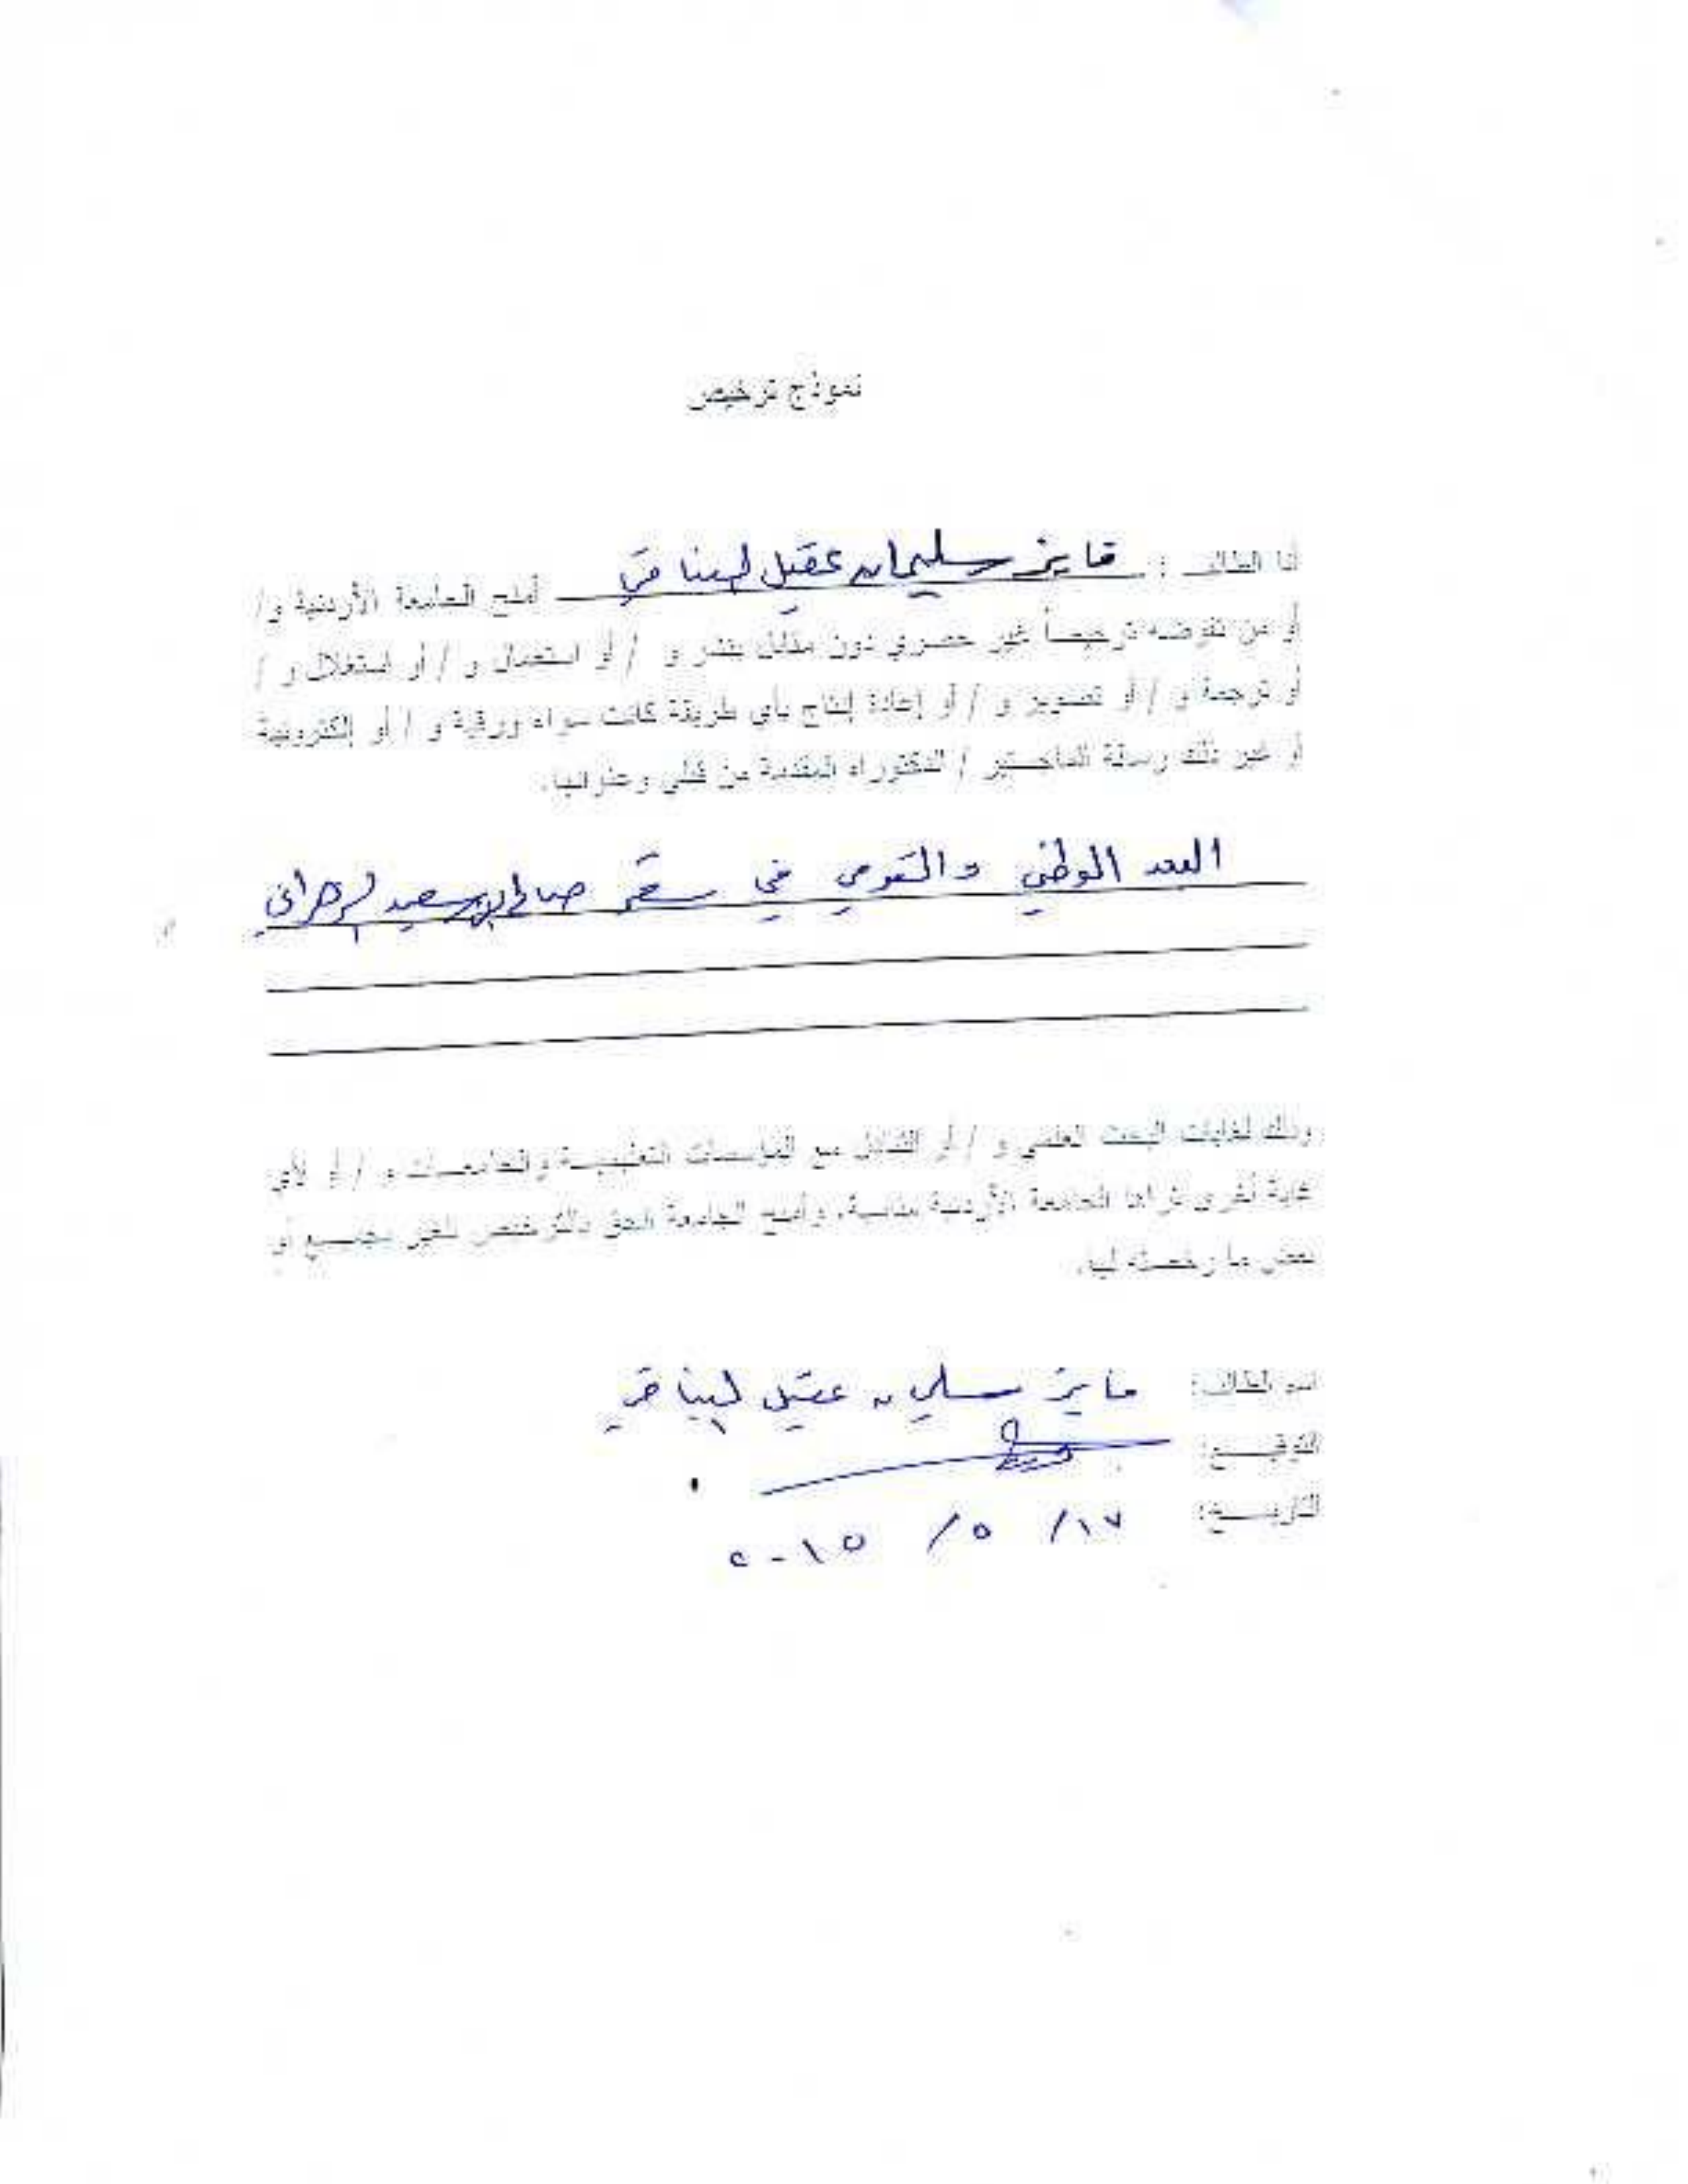 نموذج ترخيص
أنا الطالب : فايز سليمان عقيل أمنح الجامعة الأردنية و/
أو من تفوضه ترخيصاً غير حصري دون مقابل بنشر و / أو استعمال و / أو استغلال و /
أو ترجمة و / أو تصوير و / أو إعادة إنتاج بأي طريقة كانت سواء ورقية و / أو إلكترونية
أو غير ذلك رسالة الماجستير / الدكتوراه المقدمة من قبلي وعنوانها.
البعد الوطني والقومي في شعر صالح بن سعيد الزهراني
وذلك لغايات البحث العلمي و / أو التبادل مع المؤسسات التعليمية والجامعات و / أو لأي
غاية أخرى تراها الجامعة الأردنية مناسبة، وأمنح الجامعة الحق بالترخيص للغير بجميع أو
بعض ما رخصته لها.
اسم الطالب: فايز سليمان عقيل
التوقيع:
التاريخ: ١٧/ ٥ / ٢٠١٥